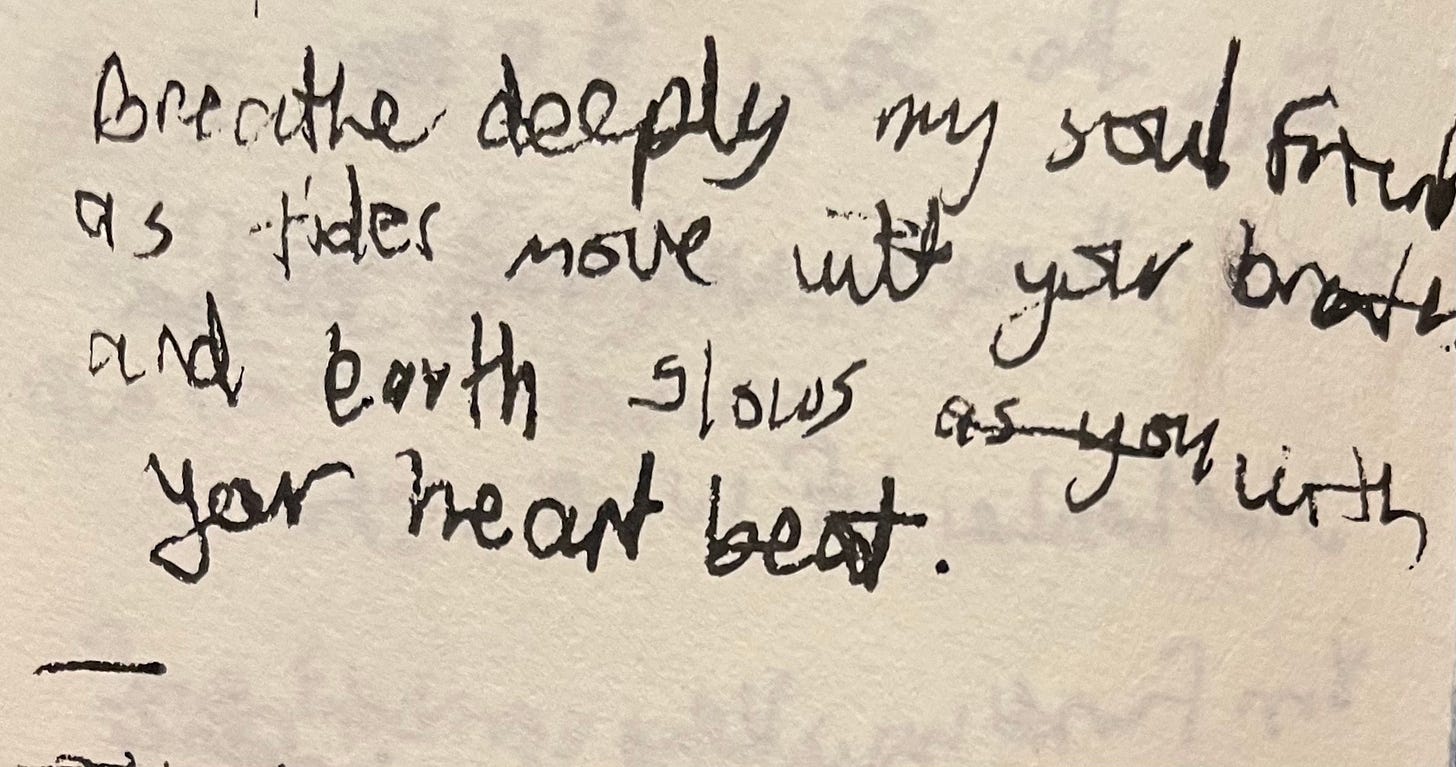 Breathe deeply my soul friend
as tides move with your breath
and earth slows as you with
your heart beat.